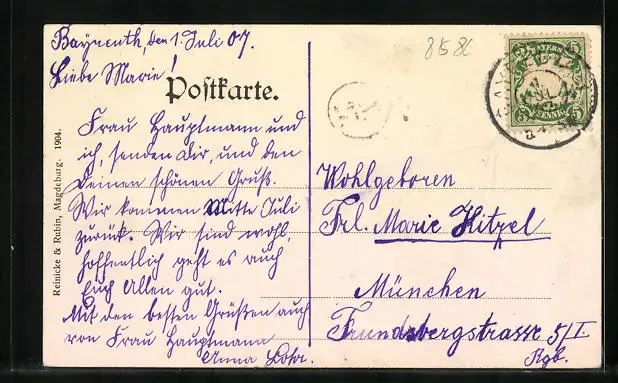 Bayreuth, den 1. Juli 07.
Liebe Marie!
Postkarte.
Frau Hauptmann und
ich, senden Dir, und den
Deinen schönen Gruß.
Wir kommen Mitte Juli
zurück. Wir sind wohl,
hoffentlich geht es auch
Euch Allen gut.
Mit den besten Grüßen auch
von Frau Hauptmann
Anna Lohr.
Reinicke & Rubin, Magdeburg. 1904.
8586
BAYERN
5 5
PFENNIG
Wohlgeboren
Frl. Marie Kitzel
München
Frundsbergstrasse 5/I
Rgb.